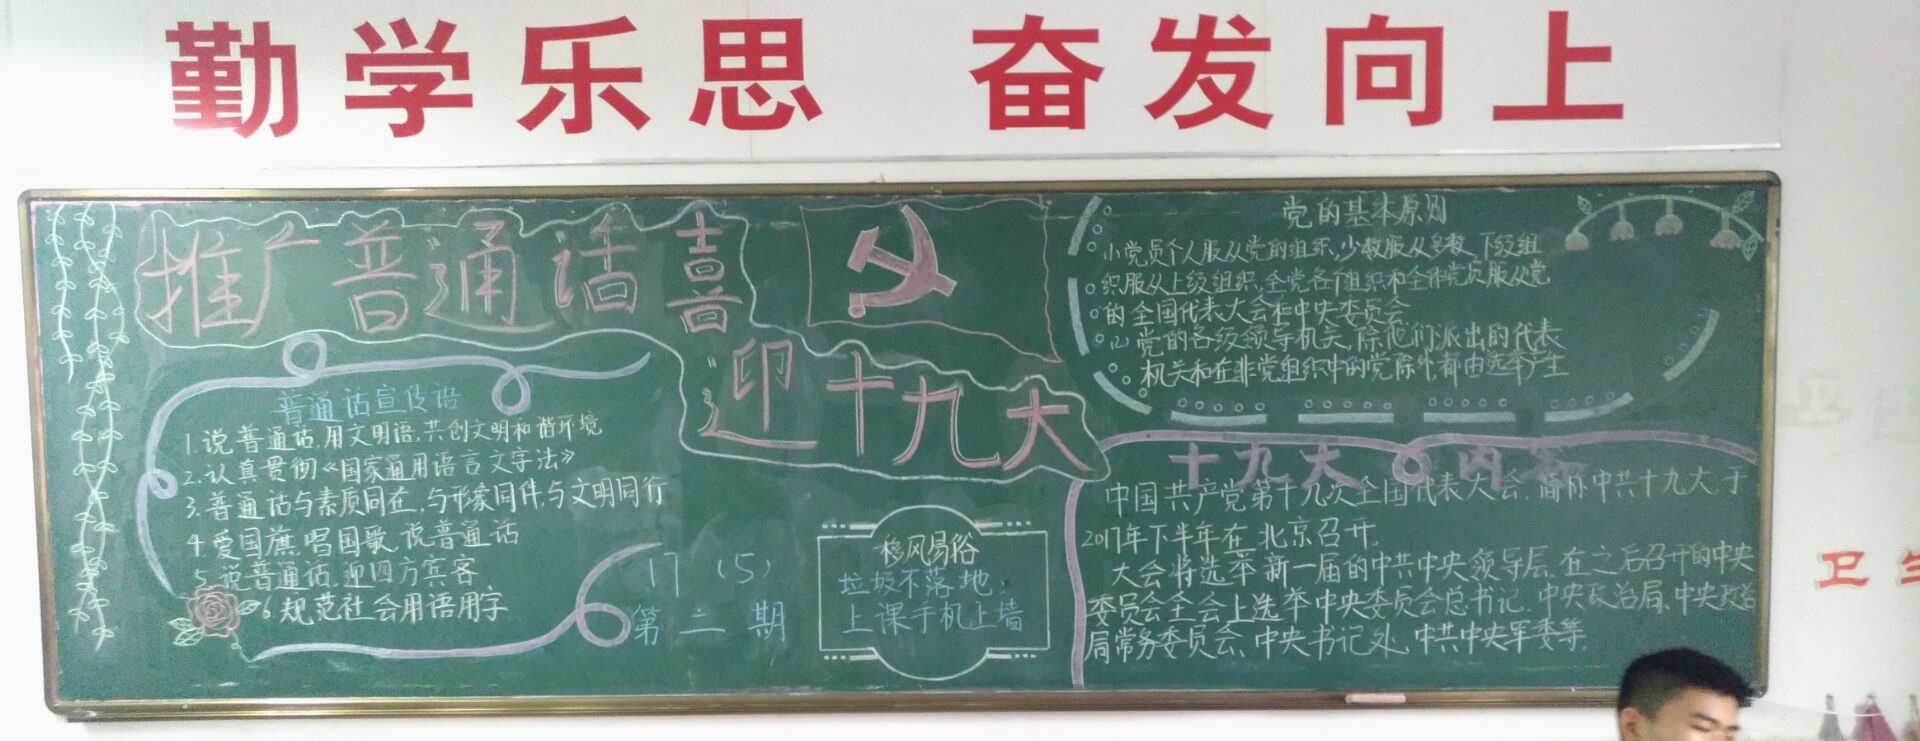 勤学乐思 奋发向上
推广普通话 喜
迎十九大
普通话宣传语
1.说普通话,用文明语,共创文明和谐环境
2.认真贯彻《国家通用语言文字法》
3.普通话与素质同在,与形象同伴,与文明同行
4.爱国旗,唱国歌,说普通话
5.说普通话,迎四方宾客
6.规范社会用语用字
17(5)
第二期
移风易俗
垃圾不落地:
上课手机上墙
党的基本原则
(1)党员个人服从党的组织,少数服从多数,下级组
织服从上级组织,全党各个组织和全体党员服从党
的全国代表大会和中央委员会
(2)党的各级领导机关,除他们派出的代表
机关和在非党组织中的党除外,都由选举产生
十九大内容
中国共产党第十九次全国代表大会,简称中共十九大,于
2017年下半年在北京召开。
大会将选举新一届的中共中央领导层,在之后召开的中央
委员会全会上选举中央委员会总书记、中央政治局、中央政治
局常务委员会、中央书记处、中共中央军委等.
卫生